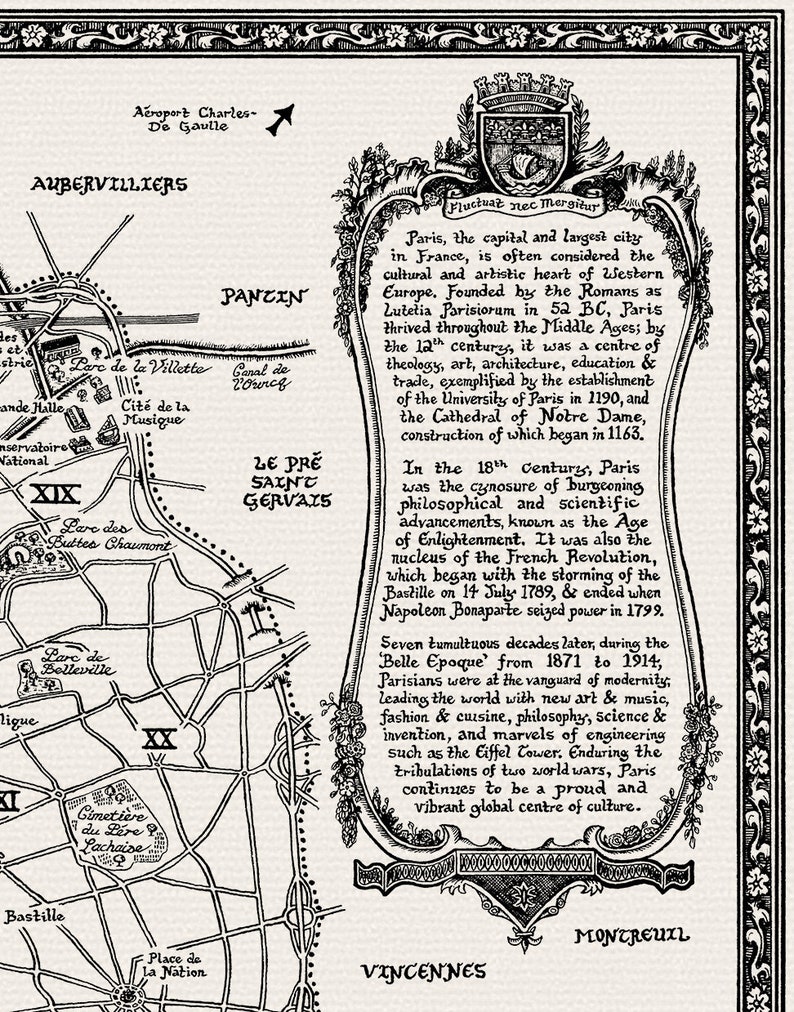 Aéroport Charles-
De Gaulle
AUBERVILLIERS
PANTIN
des
s et
strie
Parc de la Villette
Canal de
l'Ourcq
ande Halle
Cité de la
Musique
nservatoire
National
LE PRÉ
SAINT
GERVAIS
XIX
Parc des
Buttes Chaumont
Parc de
Belleville
lique
XX
XI
Cimetière
du Père
Lachaise
Bastille
Place de
la Nation
VINCENNES
MONTREUIL
Fluctuat nec Mergitur
Paris, the capital and largest city
in France, is often considered the
cultural and artistic heart of Western
Europe. Founded by the Romans as
Lutetia Parisiorum in 52 BC, Paris
thrived throughout the Middle Ages; by
the 12th century, it was a centre of
theology, art, architecture, education &
trade, exemplified by the establishment
of the University of Paris in 1190, and
the Cathedral of Notre Dame,
construction of which began in 1163.
In the 18th Century, Paris
was the cynosure of burgeoning
philosophical and scientific
advancements, known as the Age
of Enlightenment. It was also the
nucleus of the French Revolution,
which began with the storming of the
Bastille on 14 July 1789, & ended when
Napoleon Bonaparte seized power in 1799.
Seven tumultuous decades later, during the
'Belle Epoque' from 1871 to 1914,
Parisians were at the vanguard of modernity,
leading the world with new art & music,
fashion & cuisine, philosophy, science &
invention, and marvels of engineering
such as the Eiffel Tower. Enduring the
tribulations of two world wars, Paris
continues to be a proud and
vibrant global centre of culture.